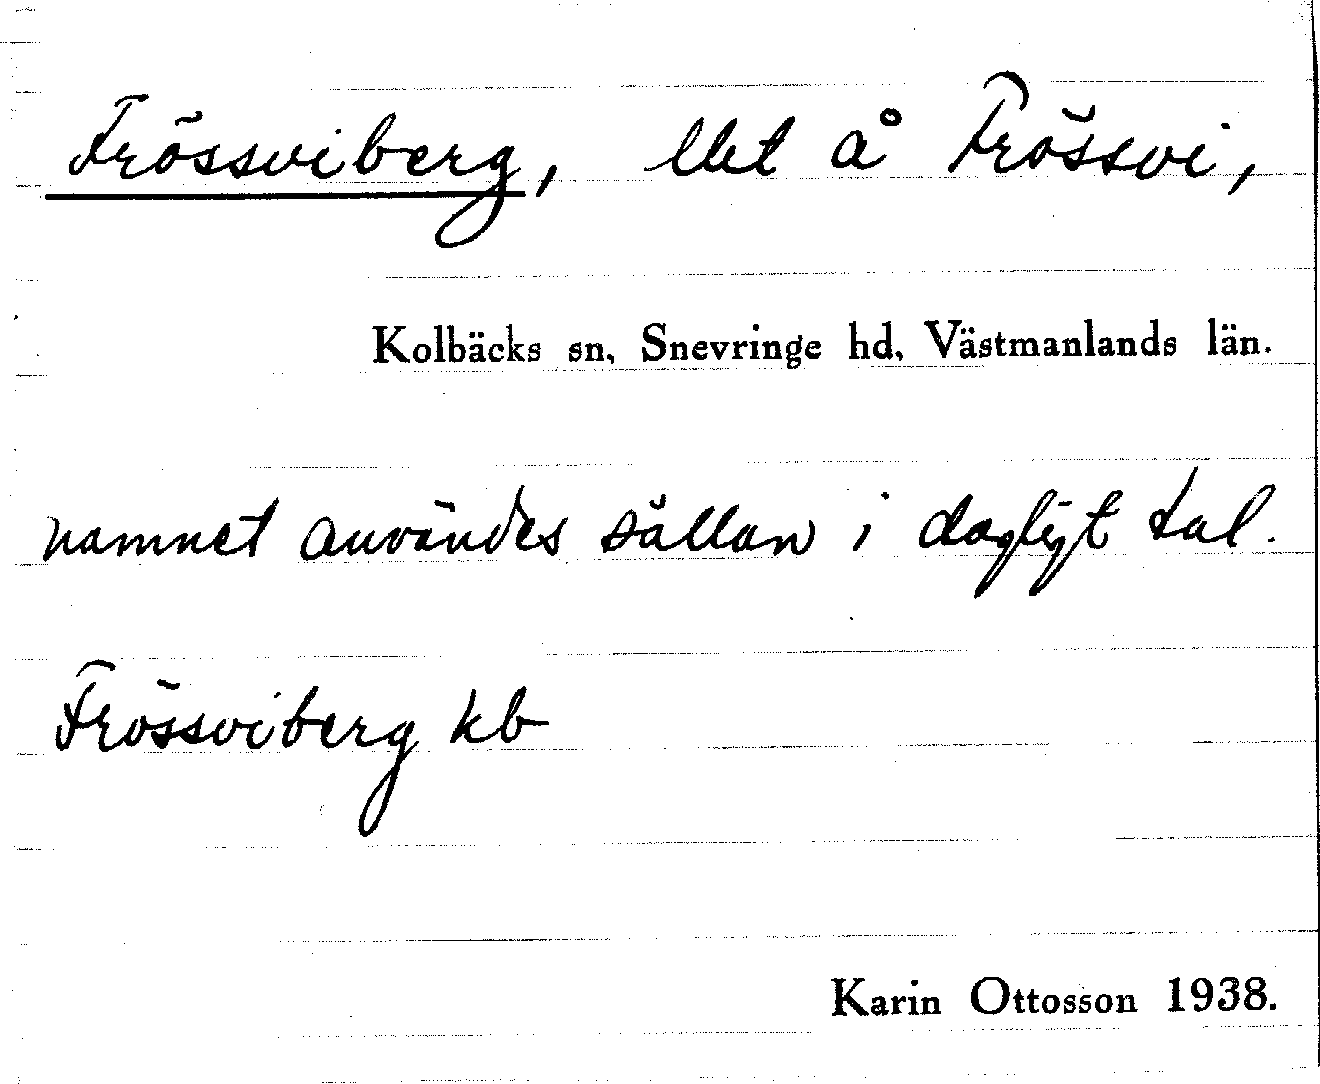 Frössviberg, llet å Frössvi,
Kolbäcks sn, Snevringe hd, Västmanlands län.
namnet användes sällan i dagligt tal.
Frössviberg kb
Karin Ottosson 1938.